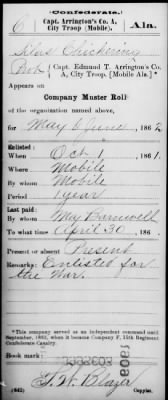 (Confederate.)
6 Capt. Arrington's Co. A, City Troop (Mobile). Ala.
Silas Chickering
Pvt { Capt. Edmund T. Arrington's Co. A, City Troop. [Mobile Ala.]
Appears on
Company Muster Roll
of the organization named above,
for May & June, 1862
Enlisted:
When Oct 1, 1861.
Where Mobile
By whom Mobile
Period 1 year
Last paid:
By whom May Barnwell
To what time April 30, 186
Present or absent Present
Remarks: Enlisted for
the War.
*This company served as an independent command until
September, 1862, when it became Company F, 15th Regiment
Confederate Cavalry.
Book mark:
(642)